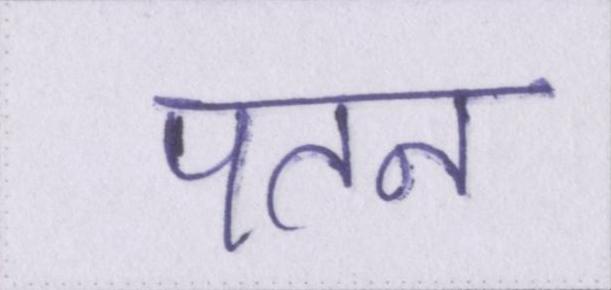 पतन